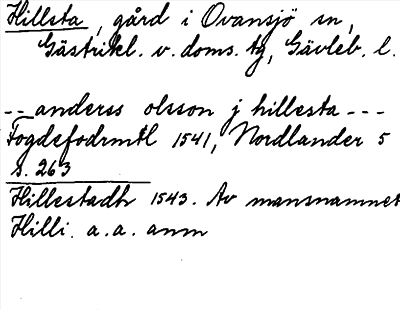 Hillsta, gård i Ovansjö sn,
Gästrikl. v. doms. tg, Gävleb. l.
-- anderss olsson j hillesta ---
Fogdefodrmtl 1541, Nordlander 5
s. 263
Hillestadh 1543. Av mansnamnet
Hilli. a. a. anm